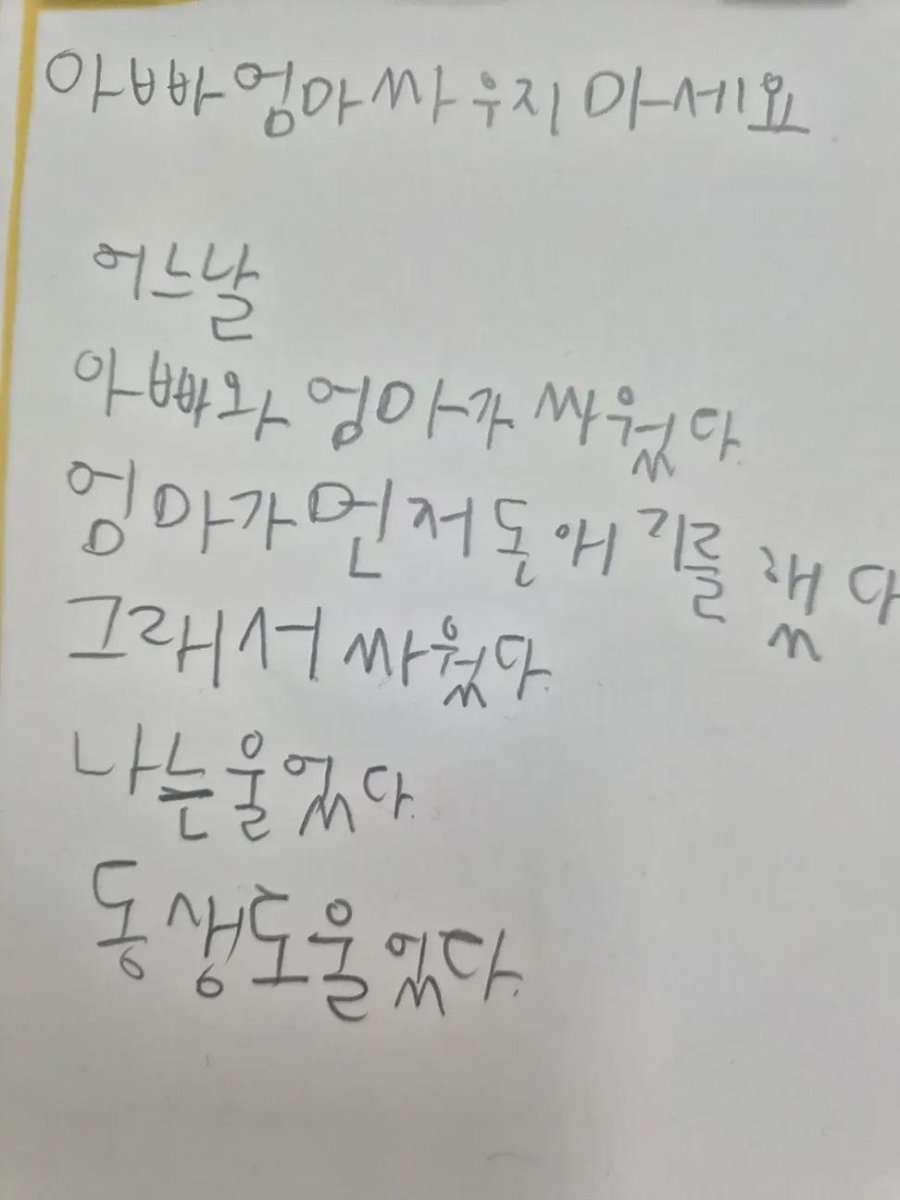 아빠엄마싸우지마세요
어느날
아빠와 엄마가 싸웠다
엄마가먼저돈애기를 했다
그래서 싸웠다.
나는울었다.
동생도울었다.